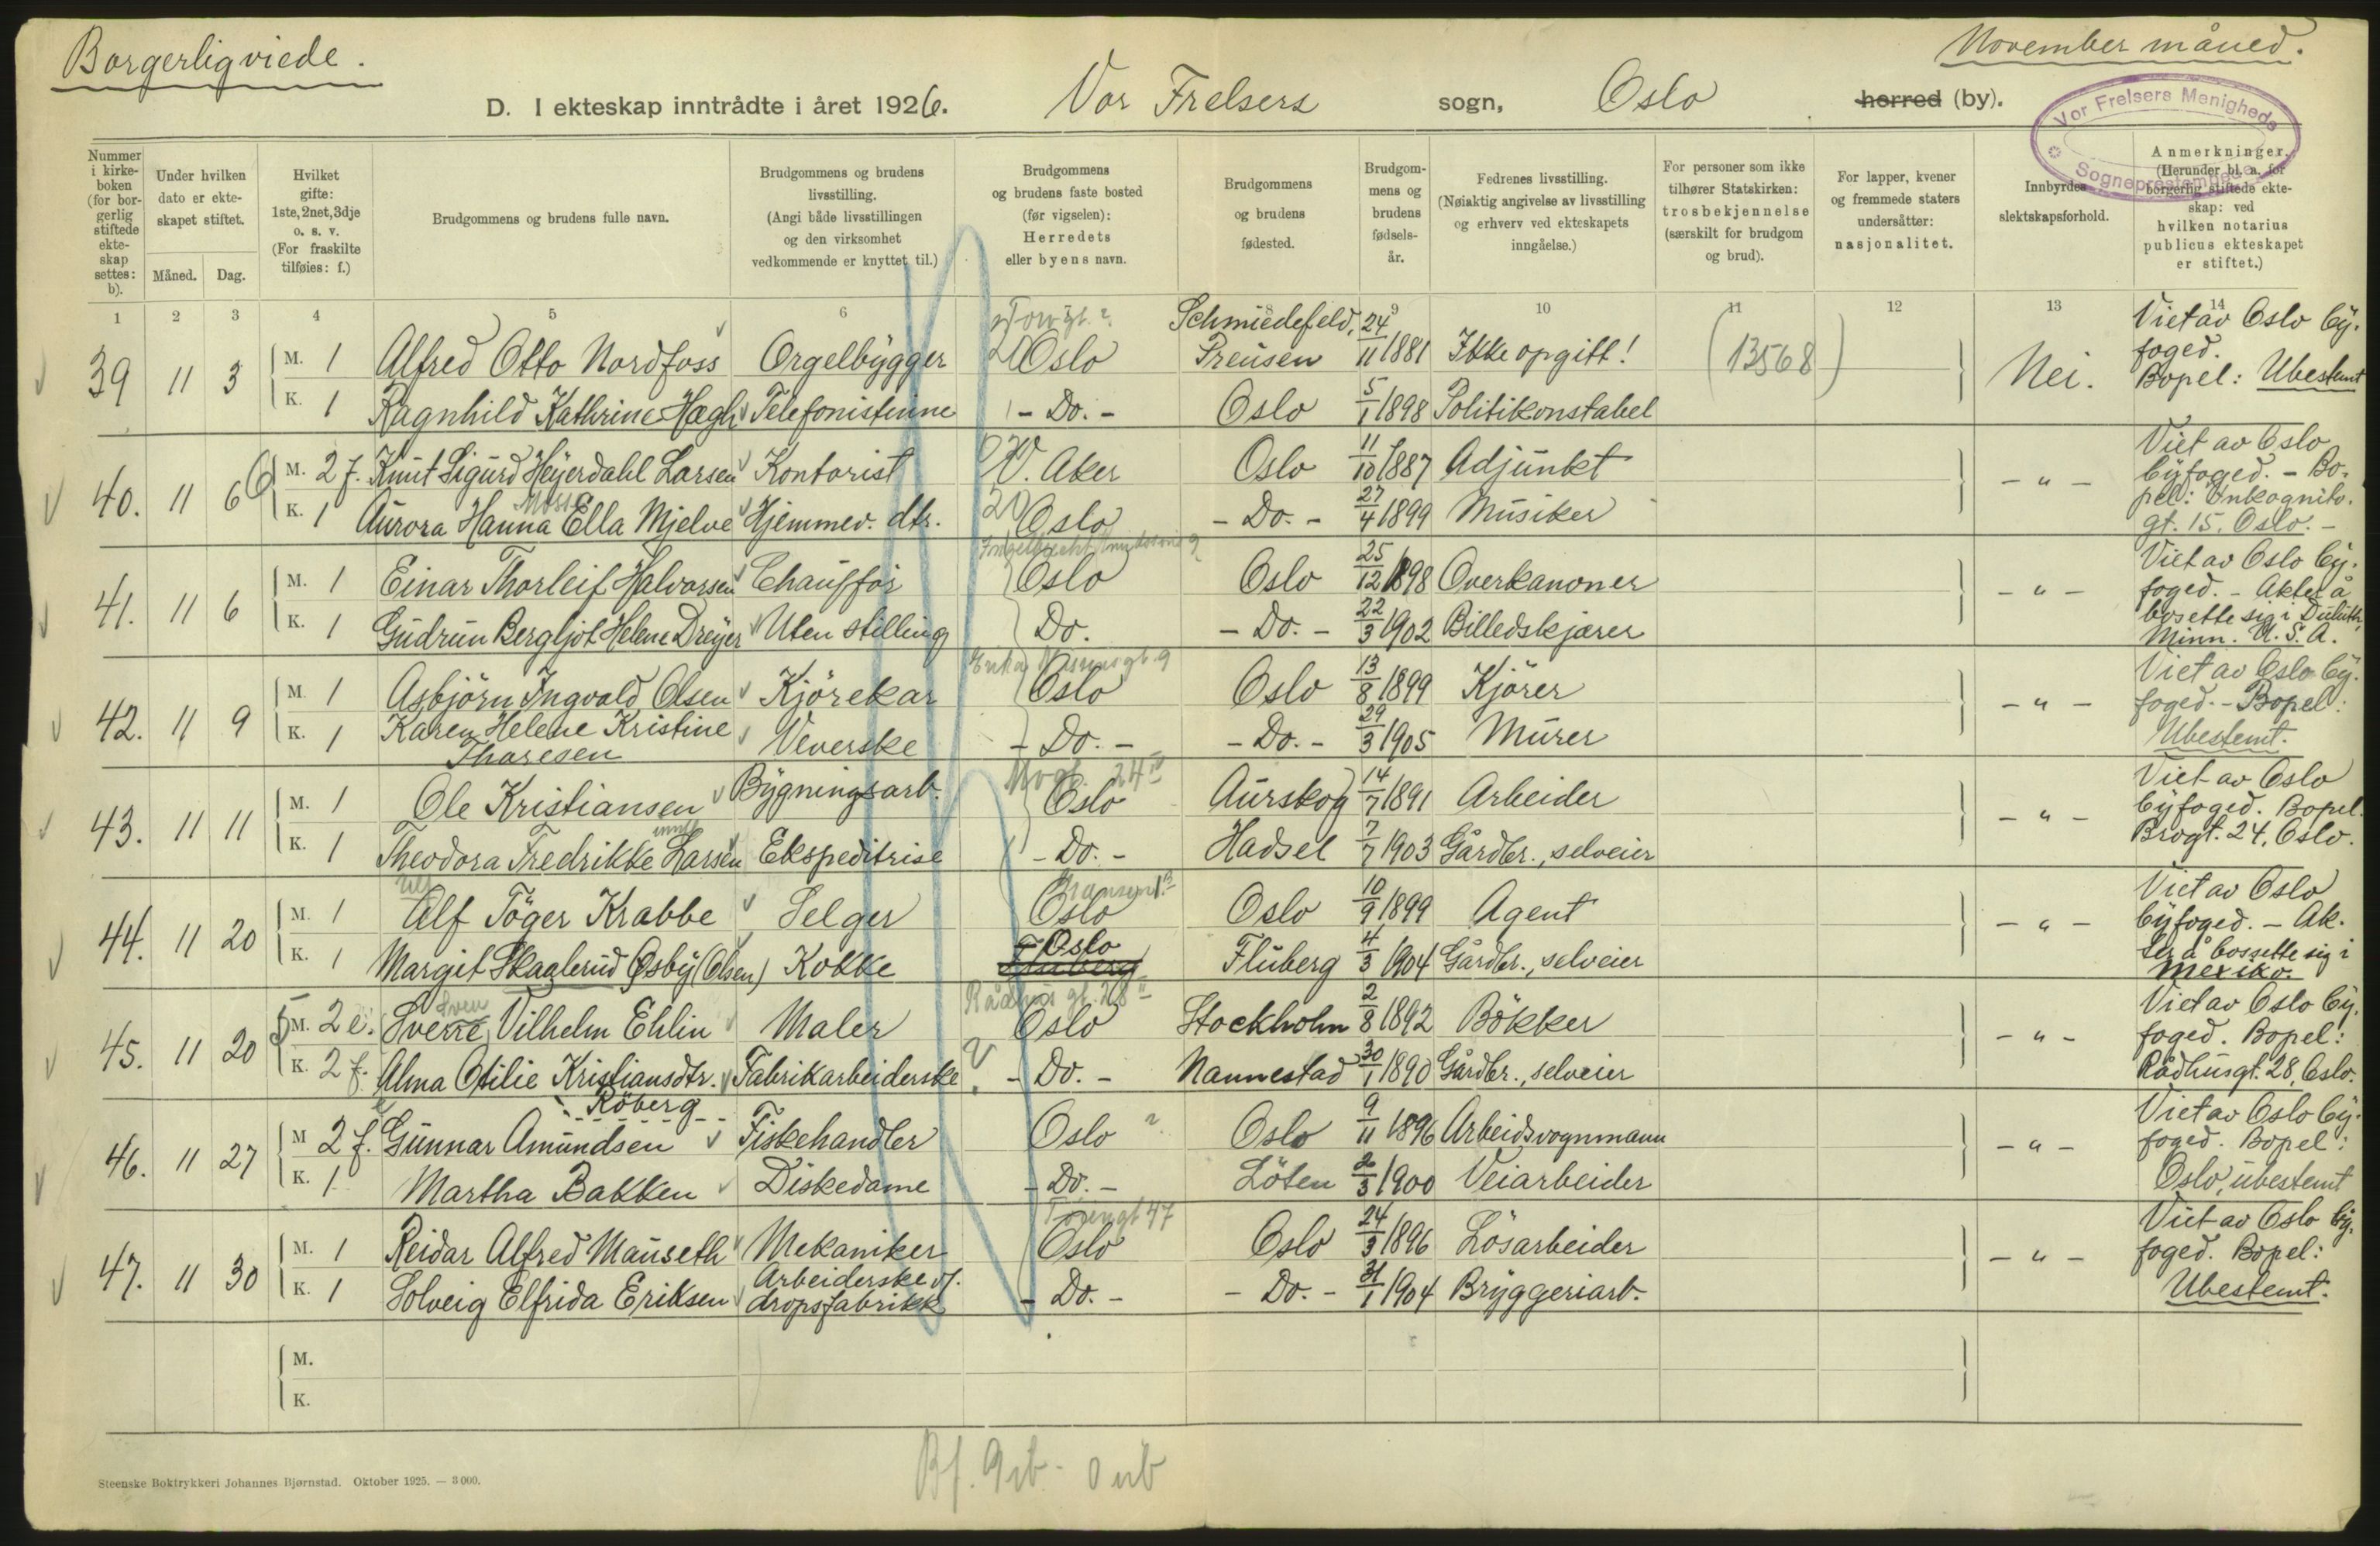 Borgerlig viede.
November måned.
D. I ekteskap inntrådte i året 1926. Vor Frelsers sogn, Oslo herred (by).
Vor Frelsers Menigheds
Sogneprestembede
Nummer i kirkeboken (for borgerlig stiftede ekteskap settes: b).
Under hvilken dato er ekteskapet stiftet.
Måned. Dag.
Hvilket gifte: 1ste, 2net, 3dje o. s. v. (For fraskilte tilføies: f.)
Brudgommens og brudens fulle navn.
Brudgommens og brudens livsstilling. (Angi både livsstillingen og den virksomhet vedkommende er knyttet til.)
Brudgommens og brudens faste bosted (før vigselen): Herredets eller byens navn.
Brudgommens og brudens fødested.
Brudgommens og brudens fødselsår.
Fedrenes livsstilling. (Nøiaktig angivelse av livsstilling og erhverv ved ekteskapets inngåelse.)
For personer som ikke tilhører Statskirken: trosbekjennelse (særskilt for brudgom og brud).
For lapper, kvener og fremmede staters undersåtter: nasjonalitet.
Innbyrdes slektskapsforhold.
Anmerkninger. (Herunder bl. a. for borgerlig stiftede ekteskap: ved hvilken notarius publicus ekteskapet er stiftet.)
1 2 3 4 5 6 8 9 10 11 12 13 14
39 11 3 M. 1 Alfred Otto Nordfoss Orgelbygger Oslo Schmiedefeld, Preusen 24/11 1881 Ikke opgitt! (13568) Nei. Viet av Oslo byfoged. Bopel: Ubestemt
K. 1 Ragnhild Kathrine Hægh Telefonistinne - Do. - Oslo 5/1 1898 Politikonstabel
40. 11 6 M. 2 f. Knut Sigurd Heyerdahl Larsen Kontorist V. Aker Oslo 11/10 1887 Adjunkt - " - Viet av Oslo byfoged. - Bopel: Inkognitogt. 15. Oslo. -
K. 1 Aurora Hanna Ella Mjelve Hjemmev. dtr. Oslo - Do. - 27/4 1899 Musiker
41. 11 6 M. 1 Einar Thorleif Halvorsen Chauffør Oslo Oslo 25/12 1898 Overkanoner - " - Viet av Oslo byfoged. - Akter å bosette sig i Duluth, Minn. U. S. A.
K. 1 Gudrun Bergljot Helene Dreyer Uten stilling Do. - Do. - 22/3 1902 Billedskjærer
42. 11 9 M. 1 Asbjörn Ingvald Olsen Kjörekar Oslo Oslo 13/8 1899 Kjörer - " - Viet av Oslo byfoged. - Bopel: Ubestemt.
K. 1 Karen Helene Kristine Thoresen Veverske - Do. - - Do. - 29/3 1905 Murer
43. 11 11 M. 1 Ole Kristiansen Bygningsarb. Oslo Aurskog 14/7 1891 Arbeider - " - Viet av Oslo byfoged. Bopel. Brogt. 24, Oslo.
K. 1 Theodora Fredrikke Larsen Ekspeditrise - Do. - Hadsel 7/7 1903 Gårdbr., selveier
44. 11 20 M. 1 Alf Töger Krabbe Selger Oslo Oslo 10/9 1899 Agent - " - Viet av Oslo byfoged. - Akter å bossette sig i Mexiko.
K. 1 Margit Skaglerud Øsby (Olsen) Kokke Oslo Fluberg 4/3 1904 Gårdbr., selveier
45. 11 20 M. 2 e. Sverre Vilhelm Ehlin Maler Oslo Stockholm 2/8 1892 Bökker - " - Viet av Oslo byfoged. Bopel: Rådhusgt. 28, Oslo.
K. 2 f. Alma Otilie Kristiansdtr. Röberg Fabrikarbeiderske - Do. - Nannestad 30/1 1890 Gårdbr., selveier
46. 11 27 M 2 f. Gunnar Amundsen Fiskehandler Oslo Oslo 9/11 1896 Arbeidsvognmann - " - Viet av Oslo byfoged. Bopel: Oslo, ubestemt
K. 1 Martha Bakken Diskedame - Do. - Löten 2/3 1900 Veiarbeider
47. 11 30 M. 1 Reidar Alfred Mauseth Mekaniker Oslo Oslo 24/3 1896 Lösarbeider - " - Viet av Oslo byfoged. Bopel: Ubestemt.
K. 1 Solveig Elfrida Eriksen Arbeiderske v/ dropsfabrikk - Do. - - Do. - 31/1 1904 Bryggeriarb.
M.
K.
Steenske Boktrykkeri Johannes Bjørnstad. Oktober 1925. — 3 000.